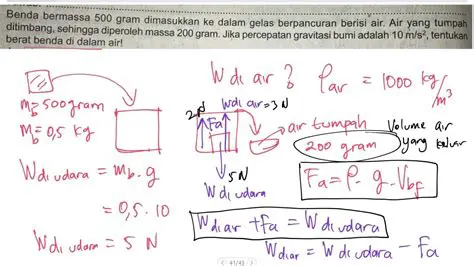 Benda bermassa 500 gram dimasukkan ke dalam gelas berpancuran berisi air. Air yang tumpah
ditimbang, sehingga diperoleh massa 200 gram. Jika percepatan gravitasi bumi adalah 10 m/s², tentukan
berat benda di dalam air!
W di air ? ρair = 1000 kg/m³
mb = 500 gram
mb = 0,5 kg
2N
Wdi air = 3N
Fa
air tumpah
200 gram
Volume air
yang keluar
5N
W di udara
Wdi udara = mb . g
= 0,5 . 10
Wdi udara = 5 N
Fa = ρ . g . Vbf
Wdi air + fa = Wdi udara
Wdi air = Wdi udara - fa
41/43